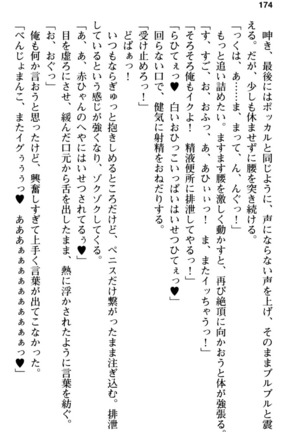 174
呻き、最後にはポッカルと同じように、声にならない声を上げ、そのままブルブルと震
える。だが、少しも休ませずに腰を突き続ける。
「っくは、あ……ま、まって、ん、んぐっ！」
もっと追い詰めたい。ますます腰を激しく動かすと、再び絶頂に向かおうと体が強張る。
「す、すご、お、おふっ、あ、あひぃぃっ！　ま、またイッちゃうっ！」
「そろそろ俺もイクよ！　精液便所に排泄してやるっ！」
「らひてぇっ♥　白いおひっこいっぱいはいせつひてぇっ♥」
回らない口で、健気に射精をおねだりする。
「受け止めろっ！」
どばぁっ！
いつもならぎゅっと抱きしめるところだけど、ペニスだけ繋がったまま注ぎ込む。排泄
しているという感じが強くなり、ゾクゾクしてくる。
「あ、あ、赤ひゃんのへやにはいせつされてるぅ♥」
目を虚ろにさせ、緩んだ口元から舌を出したまま、熱に浮かされたように言葉を紡ぐ。
「お、おぐっ」
俺も何か言おうと思ったけど、興奮しすぎて上手く言葉が出てこなかった。
「べんじょまんこ、またイグぅぅぅっ♥　あああぁぁぁぁぁぁぁぁっ♥」